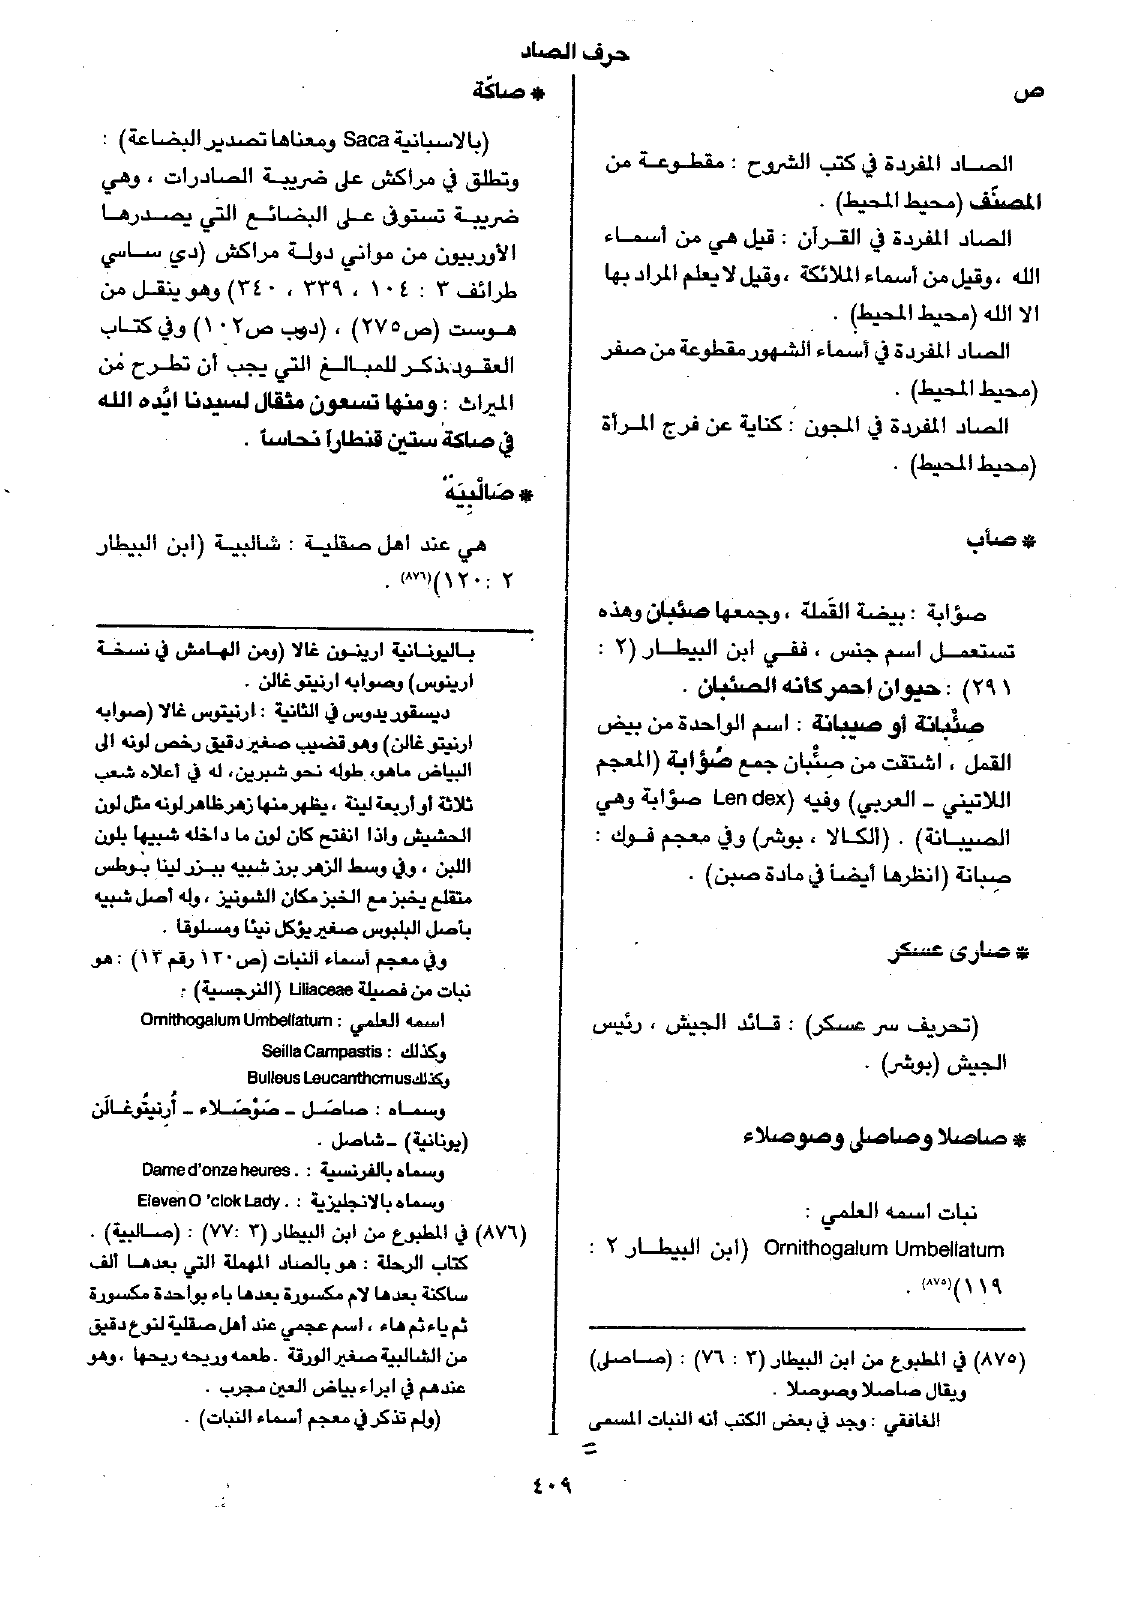 حرف الصاد
ص
الصاد المفردة في كتب الشروح : مقطوعة من
المصنّف (محيط المحيط) .
الصاد المفردة في القرآن : قيل هي من أسماء
الله ، وقيل من أسماء الملائكة ، وقيل لا يعلم المراد بها
الا الله (محيط المحيط) .
الصاد المفردة في أسماء الشهور مقطوعة من صفر
(محيط المحيط) .
الصاد المفردة في المجون : كناية عن فرج المرأة
(محيط المحيط) .
* صأب
صؤابة : بيضة القَملة ، وجمعها صئبان وهذه
تستعمل اسم جنس ، ففي ابن البيطار (٢ :
٢٩١) : حيوان احمر كأنه الصئبان .
صِئْبانة أو صيبانة : اسم الواحدة من بيض
القمل ، اشتقت من صِئْبان جمع صُؤابة (المعجم
اللاتيني – العربي) وفيه (Len dex صؤابة وهي
الصيبانة) . (الكالا ، بوشر) وفي معجم فوك :
صبانة (انظرها أيضاً في مادة صبن) .
* صارى عسكر
(تحريف سر عسكر) : قائد الجيش ، رئيس
الجيش (بوشر) .
* صاصلا وصاصلى وصوصلاء
نبات اسمه العلمي :
Ornithogalum Umbellatum (ابن البيطار ٢ :
١١٩)(٨٧٥) .
(٨٧٥) في المطبوع من ابن البيطار (٣ : ٧٦) : (صاصلى)
ويقال صاصلا وصوصلا .
الغافقي : وجد في بعض الكتب أنه النبات المسمى
* صاكّة
(بالاسبانية Saca ومعناها تصدير البضاعة) :
وتطلق في مراكش على ضريبة الصادرات ، وهي
ضريبة تستوفى على البضائع التي يصدرها
الأوربيون من مواني دولة مراكش (دي ساسي
طرائف ٣ : ١٠٤ ، ٣٣٩ ، ٣٤٠) وهو ينقل من
هوست (ص٢٧٥) ، (دوب ص١٠٢) وفي كتاب
العقود ذكر للمبالغ التي يجب أن تطرح من
الميراث : ومنها تسعون مثقال لسيدنا ايّده الله
في صاكة ستين قنطاراً نحاساً .
* صَالْبِيَة
هي عند اهل صقلية : شالبية (ابن البيطار
٢ : ١٢٠)(٨٧٦) .
باليونانية ارينون غالا (ومن الهامش في نسخة
ارينوس) وصوابه ارنيتو غالن .
ديسقوريدوس في الثانية : ارنيتوس غالا (صوابه
ارنيتو غالن) وهو قضيب صغير دقيق رخص لونه الى
البياض ماهو، طوله نحو شبرين، له في أعلاه شعب
ثلاثة أو أربعة لينة ، يظهر منها زهر ظاهر لونه مثل لون
الحشيش واذا انفتح كان لون ما داخله شبيها بلون
اللبن ، وفي وسط الزهر برز شبيه ببزر لينا بوطس
متقلع يخبز مع الخبز مكان الشونيز ، وله أصل شبيه
بأصل البلبوس صغير يؤكل نيئا ومسلوقا .
وفي معجم أسماء النبات (ص١٣٠ رقم ١٣) : هو
نبات من فصيلة Liliaceae (النرجسية) :
اسمه العلمي : Ornithogalum Umbellatum
وكذلك : Seilla Campastis
وكذلك Bulleus Leucanthcmus
وسماه : صاصَل – صَوْصَلاء – أُرنيتُوغالَن
(يونانية) – شاصل .
وسماه بالفرنسية : Dame d'onze heures .
وسماه بالانجليزية : Eleven O 'clok Lady .
(٨٧٦) في المطبوع من ابن البيطار (٣ :٧٧) : (صالبية) .
كتاب الرحلة : هو بالصاد المهملة التي بعدها ألف
ساكنة بعدها لام مكسورة بعدها باء بواحدة مكسورة
ثم ياء ثم هاء ، اسم عجمي عند أهل صقلية لنوع دقيق
من الشالبية صغير الورقة . طعمه وريحه ريحها ، وهو
عندهم في ابراء بياض العين مجرب .
(ولم تذكر في معجم أسماء النبات) .
٤٠٩